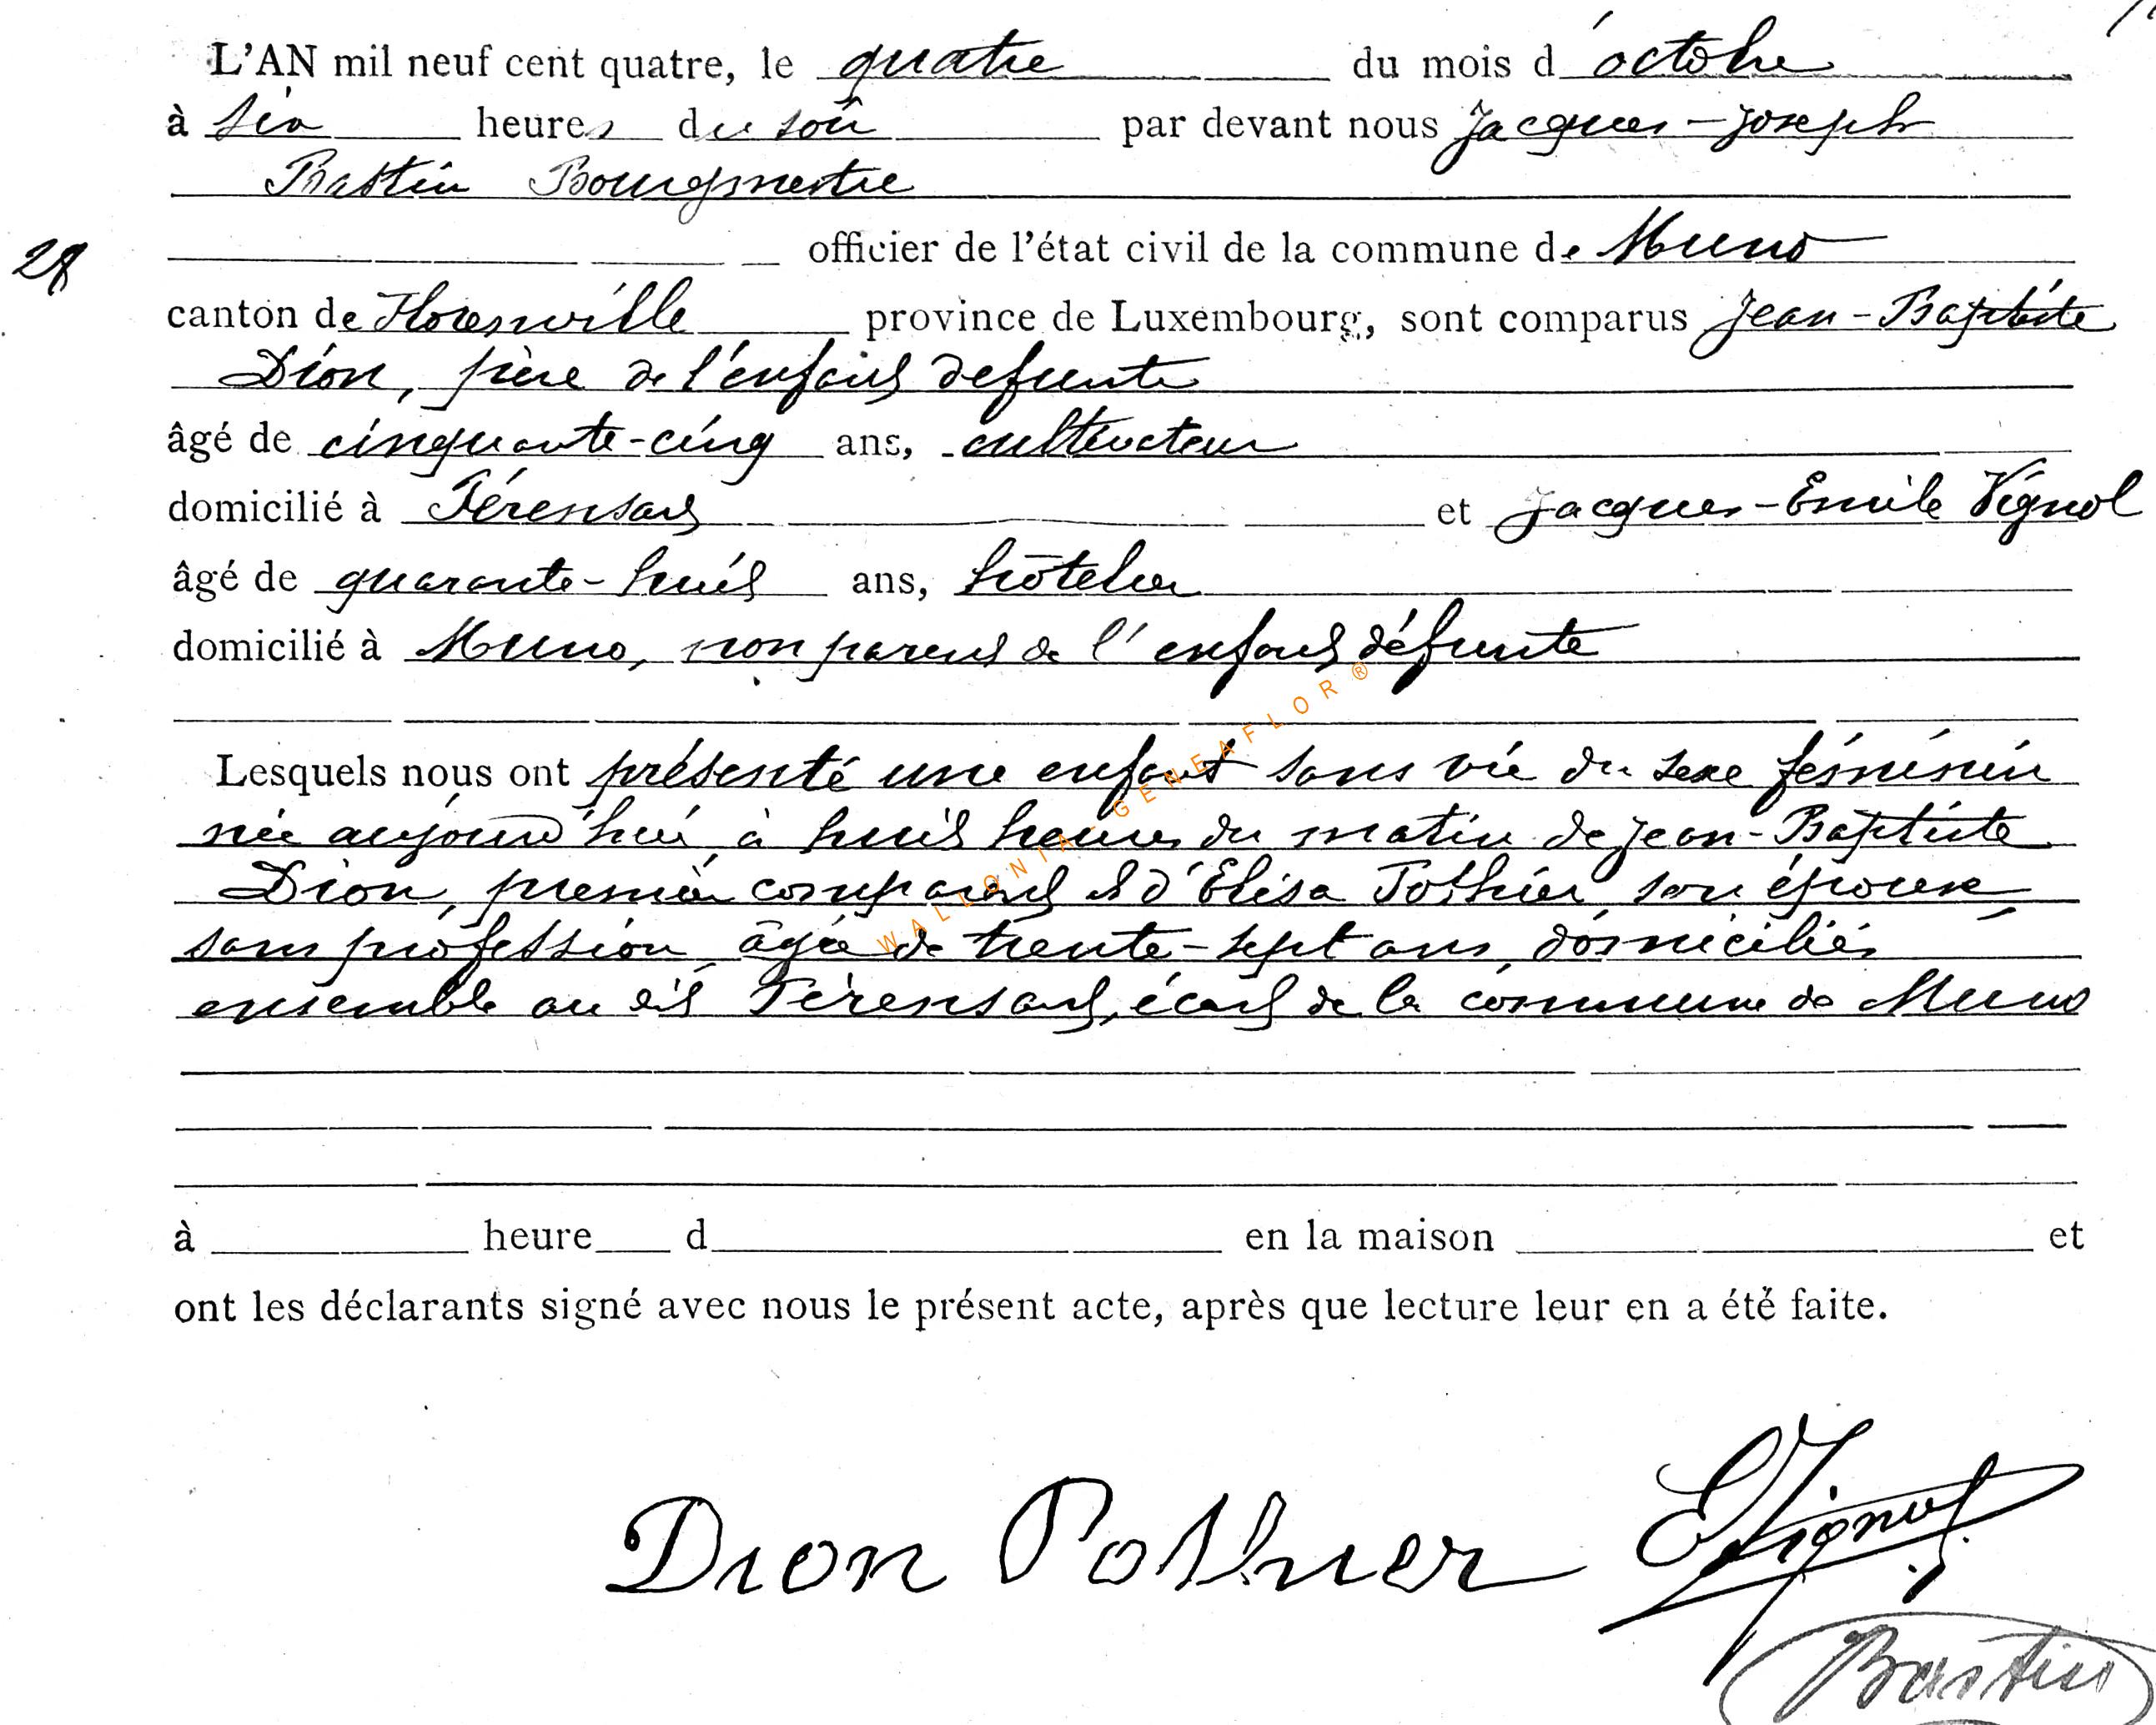 L'AN mil neuf cent quatre, le quatre du mois d'octobre
à six heures du soir par devant nous Jacques-Joseph
Bastin Bourgmestre
officier de l'état civil de la commune de Muno
28
canton de Florenville province de Luxembourg, sont comparus Jean-Baptiste
Dion, père de l'enfant défunte
âgé de cinquante-cinq ans, cultivateur
domicilié à Férensart et Jacques-Emile Vignol
âgé de quarante-huit ans, hôtelier
domicilié à Muno, non parent de l'enfant défunte
Lesquels nous ont présenté une enfant sans vie du sexe féminin
née aujourd'hui à huit heures du matin de Jean-Baptiste
Dion, premier comparant et d'Elisa Pothier son épouse,
sans profession, âgée de trente-sept ans, domiciliés
ensemble au dit Férensart, écart de la commune de Muno
à heure d en la maison et
ont les déclarants signé avec nous le présent acte, après que lecture leur en a été faite.
Dion Pothier EVignol
Bastin
WALLONIA-GENEAFLOR®